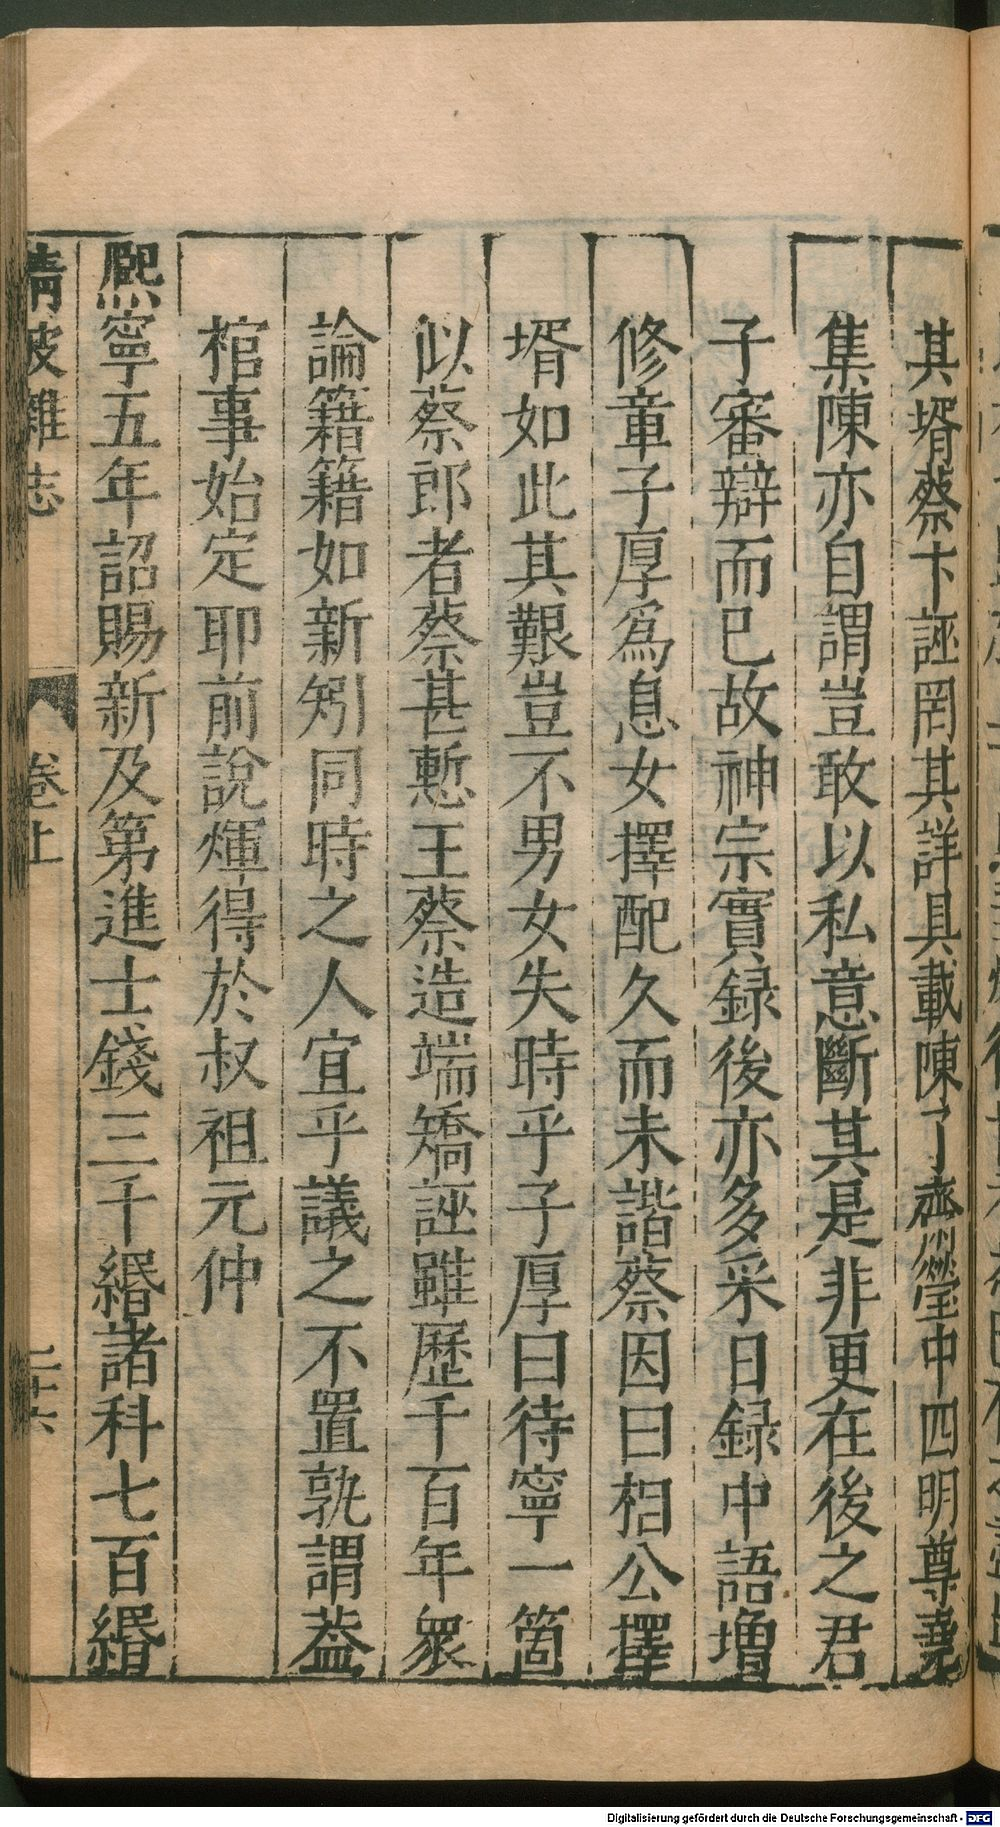 其壻蔡卞誣罔其詳具載陳了齋瑩中四明尊堯
集陳亦自謂豈敢以私意斷其是非更在後之君
子審辯而已故神宗實録後亦多采日録中語增
修章子厚爲息女擇配久而未諧蔡因曰相公擇
壻如此其艱豈不男女失時乎子厚曰待寧一箇
似蔡郎者蔡甚慙王蔡造端矯誣雖歷千百年衆
論籍籍如新矧同時之人宜乎議之不置孰謂葢
棺事始定耶前說煇得於叔祖元仲
熈寧五年詔賜新及第進士錢三千緡諸科七百緡
清波雜志 卷上 二十六
Digitalisierung gefördert durch die Deutsche Forschungsgemeinschaft - DFG